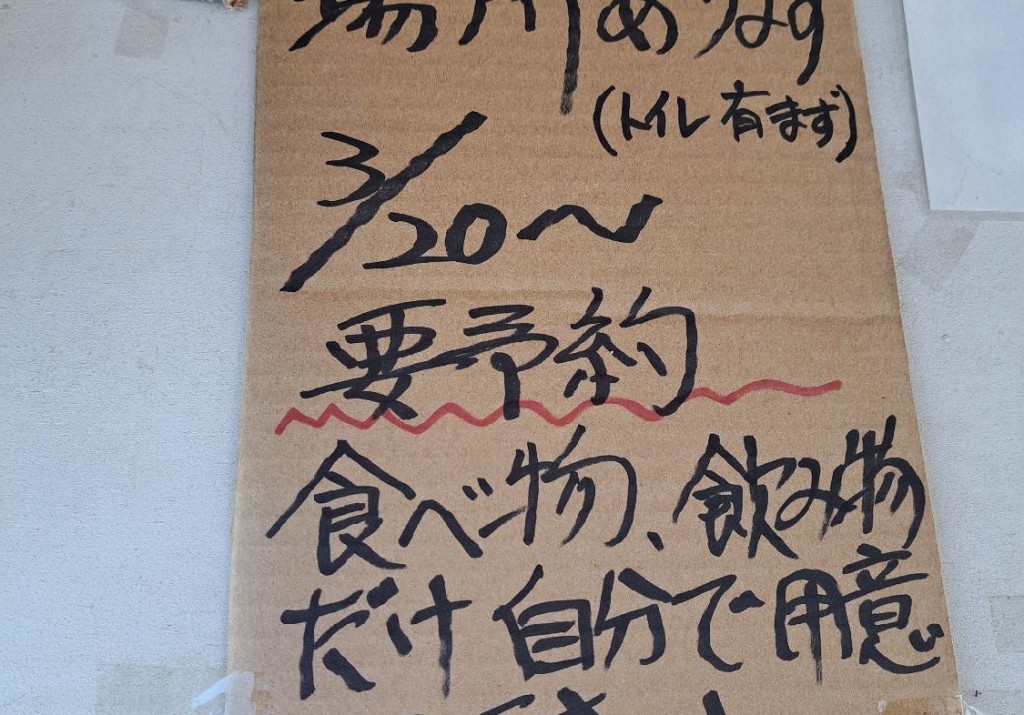 場所あります
(トイレ有ます)
3/20〜
要予約
食べ物、飲み物
だけ自分で用意